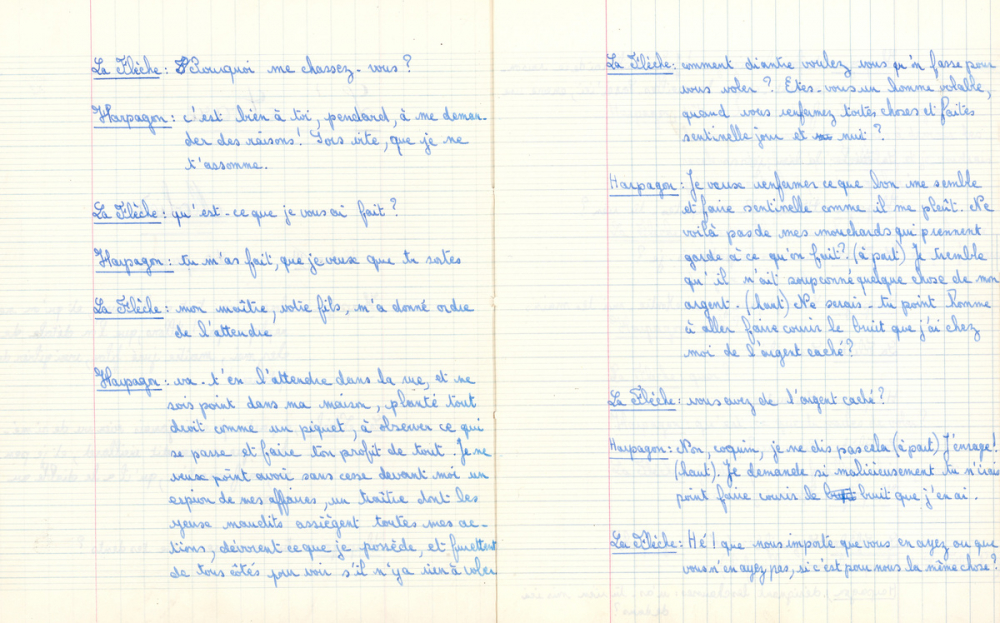 La Flèche: Pourquoi me chassez-vous?
Harpagon: c'est bien à toi, pendard, à me deman-
der des raisons! Sors vite, que je ne
t'assomme.
La Flèche: qu'est-ce que je vous ai fait?
Harpagon: tu m'as fait, que je veux que tu sortes
La Flèche: mon maître, votre fils, m'a donné ordre
de l'attendre
Harpagon: va-t'en l'attendre dans la rue, et ne
sois point dans ma maison, planté tout
droit comme un piquet, à observer ce qui
se passe et faire ton profit de tout. Je ne
veux point avoir sans cesse devant moi un
espion de mes affaires, un traître dont les
yeux maudits assiègent toutes mes ac-
tions, dévorent ce que je possède, et furettent
de tous côtés pour voir s'il n'y a rien à voler
La Flèche: comment diantre voulez vous qu'on fasse pour
vous voler? Etes-vous un homme volable,
quand vous renfermez toutes choses et faites
sentinelle jour et nuit?
Harpagon: Je veux renfermer ce que bon me semble
et faire sentinelle comme il me plaît. Ne
voilà pas de mes mouchards qui prennent
garde à ce qu'on fait? (à part) Je tremble
qu'il n'ait soupçonné quelque chose de mon
argent. (haut) Ne serais-tu point homme
à aller faire courir le bruit que j'ai chez
moi de l'argent caché?
La Flèche: vous avez de l'argent caché?
Harpagon: Non, coquin, je ne dis pas cela (à part) J'enrage!
(haut). Je demande si malicieusement tu n'irais
point faire courir le bruit que j'en ai.
La Flèche: Hé! que nous importe que vous en ayez ou que
vous n'en ayez pas, si c'est pour nous la même chose?